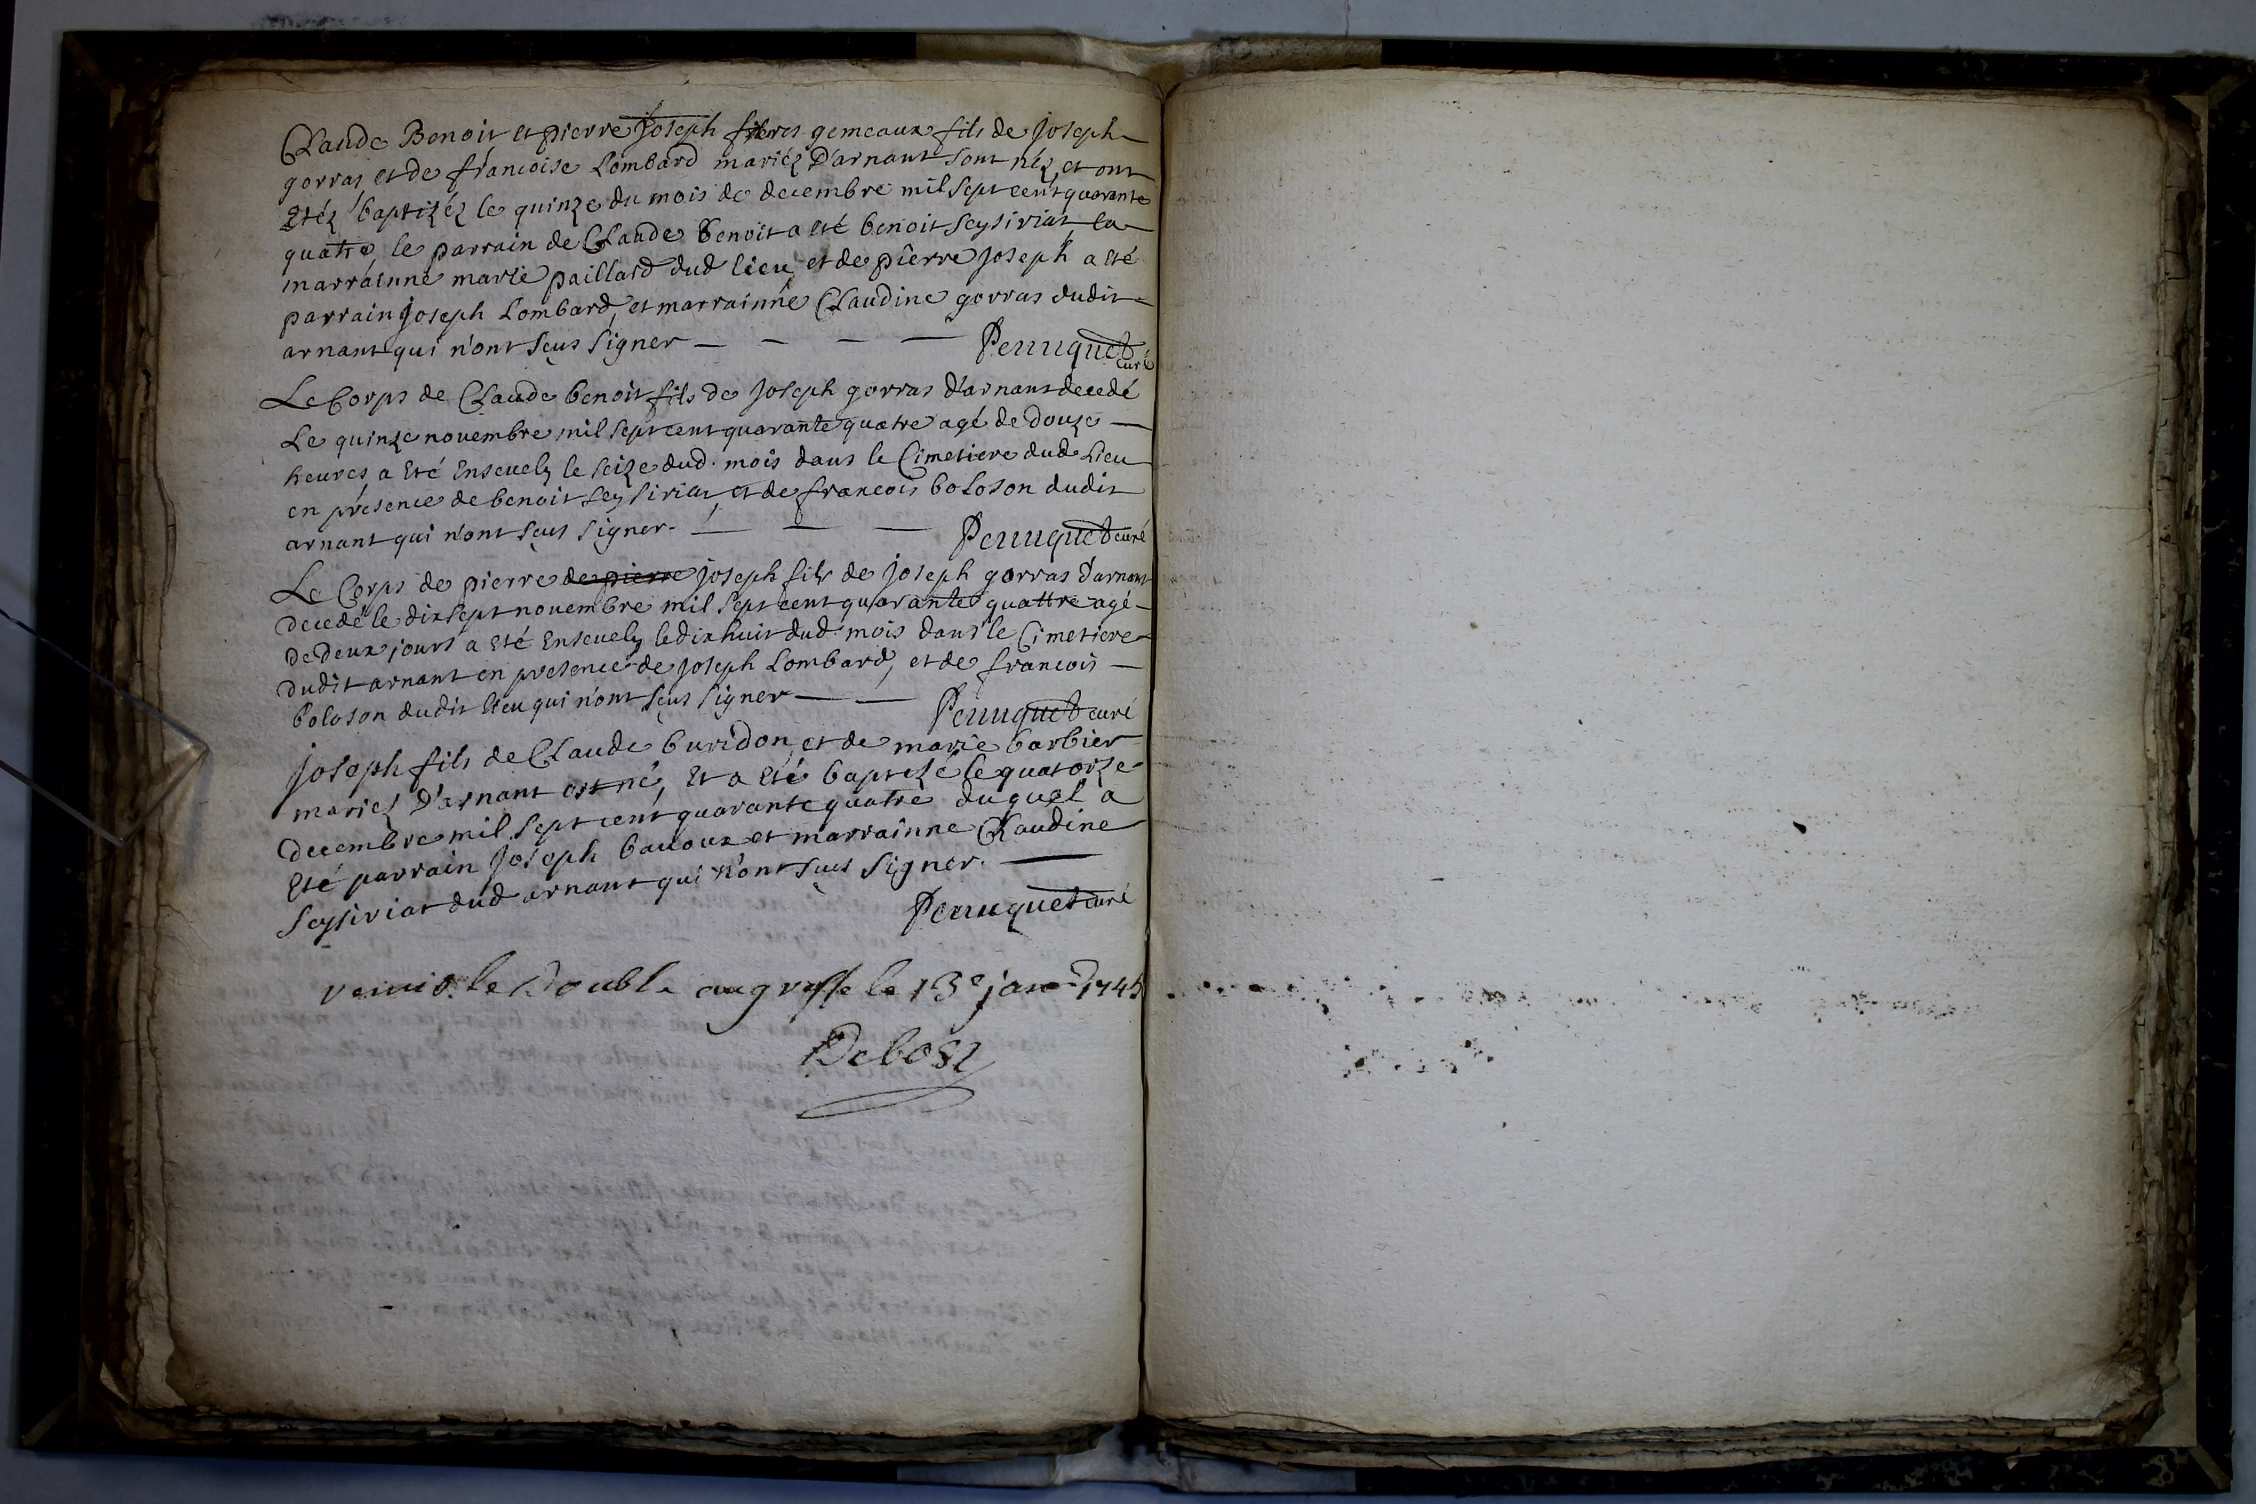 Claude Benoit et pierre Joseph freres gemeaux fils de Joseph
gorras, et de francoise Lombard mariéz D'arnant sont néz, et ont
Etéz baptizéz le quinze du mois de decembre mil sept cent quarante
quatre, le parrain de Claude Benoit a eté benoit Seysiriat, la
marrainne marie paillard dud lieu, et de pierre Joseph a eté
parrain Joseph Lombard, et marrainne Claudine gorras dudit
arnant qui n'ont sçus signer
Perruquet curé
Le Corps de Claude benoit fils de Joseph gorras d'arnant decedé
Le quinze novembre mil sept cent quarante quatre agé de douze
heures, a Eté Ensevely le seize dud. mois dans le Cimetiere dud Lieu
en presence de benoit Seysiriat, et de francois boloson dudit
arnant qui n'ont sçus signer.
Perruquet curé
Le Corps de pierre de pierre Joseph fils de Joseph gorras d'arnant
decedé le dix sept novembre mil sept cent quarante quattre agé
de deux jours a eté Ensevely le dix huit dud. mois dans le Cimetiere
dudit arnant en presence de Joseph Lombard, et de francois
boloson dudit lieu qui n'ont sçus signer
Perruquet curé
Joseph fils de Claude buridon, et de marie barbier
mariez D'arnant est né, Et a eté baptizé le quatorze
decembre mil sept cent quarante quatre duquel a
Eté parrain Joseph bavoux et marrainne Claudine
Seysiriat dud arnant qui n'ont sçus signer.
Perruquet curé
remis le Double au greffe le 13e janv 1745
Debost